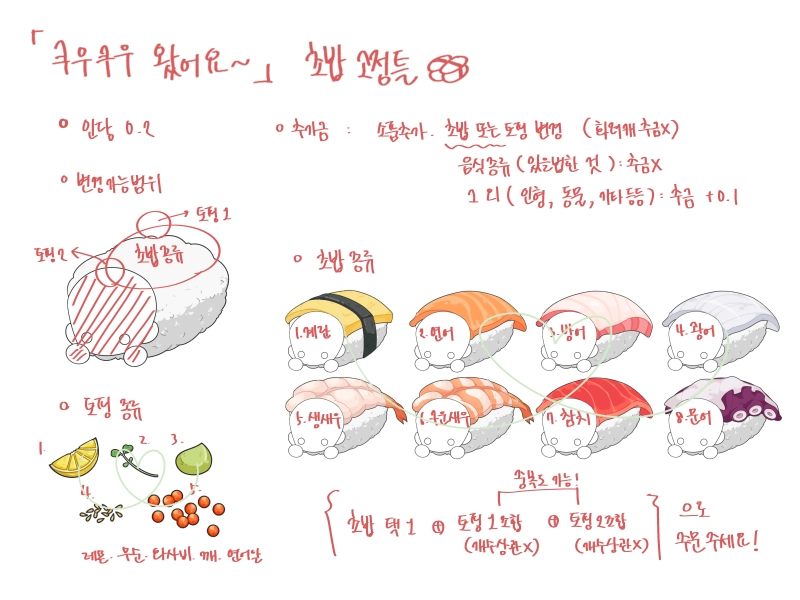 「쿠우쿠우 왔어요~」 초밥 꼬찜틀
인당 0.2
추가금 : 소품추가. 초밥 또는 토핑 변경 (회러개 추금X)
음식종류 (있을법한 것) : 추금X
그 외 (인형, 동물, 기타등등) : 추금 +0.1
변경가능범위
토핑1
토핑2
초밥종류
초밥 종류
1.계란
2.연어
3.방어
4.광어
5.생새우
6.축은새우
7.참치
8.문어
토핑 종류
1.
2.
3.
4.
5.
레몬. 무순. 와사비. 깨. 연어알
중복도 가능!
초밥 택1 ⊕ 토핑1조합 ⊕ 토핑2조합 으로
(개수상관X) (개수상관X) 주문주세요!